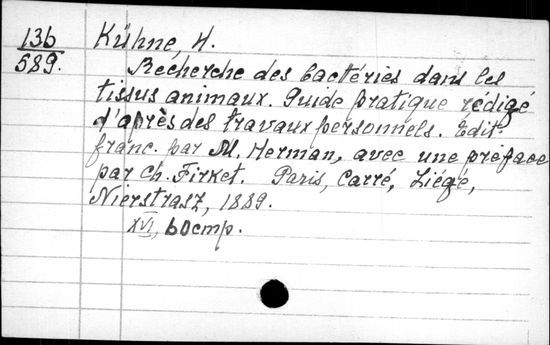 136
589.
Kühne, H.
Recherche des bactéries dans les
tissus animaux. Guide pratique rédigé
d'après des travaux personnels. Édit.
franc. par M. Herman, avec une préface
par Ch. Firket. Paris, Carré, Liége,
Nierstrasz, 1889.
XVI, 60 стр.